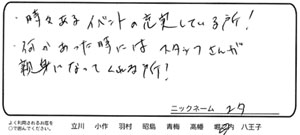 ・時々あるイベントの充実している所!
・何かあった時にはスタッフさんが
親身になってくれる所!
ニックネーム
よく利用されるお店を
○で囲んでください。
立川 小作 羽村 昭島 青梅 高幡 堀之内 八王子